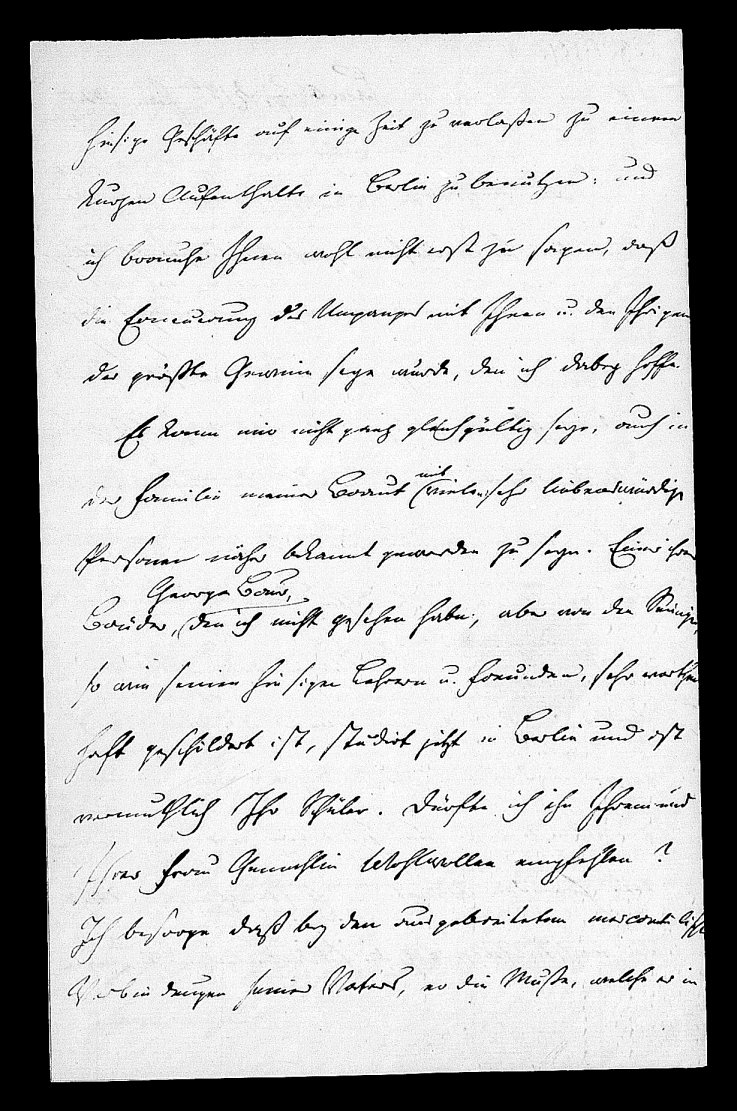 hiesige Geschäfte auf einige Zeit zu verlaßen zu einem
kurzen Aufenthalte in Berlin zu benutzen: und
ich brauche Ihnen wohl nicht erst zu sagen, daß
die Erneuerung des Umganges mit Ihnen u. den Ihrigen
der größte Gewinn seyn würde, den ich dabey hoffe.
Es kann mir nicht ganz gleichgültig seyn, auch in
der Familie meiner Braut mit vielen sehr liebenswürdigen
Personen näher bekannt geworden zu seyn. Einer ihrer
George Baur,
Brüder, (den ich nicht gesehen habe, aber von den Seinigen,
so wie seinen hiesigen Lehrern u. Freunden, sehr vortheil
haft geschildert ist, studirt jetzt in Berlin und ist
vermuthlich Ihr Schüler. Dürfte ich ihn Ihrem und
Ihrer Frau Gemahlin Wohlwollen empfehlen?
Ich besorge daß bey den ausgebreiteten mercantilischen
Verbindungen seines Vaters, er die Muße, welche er in